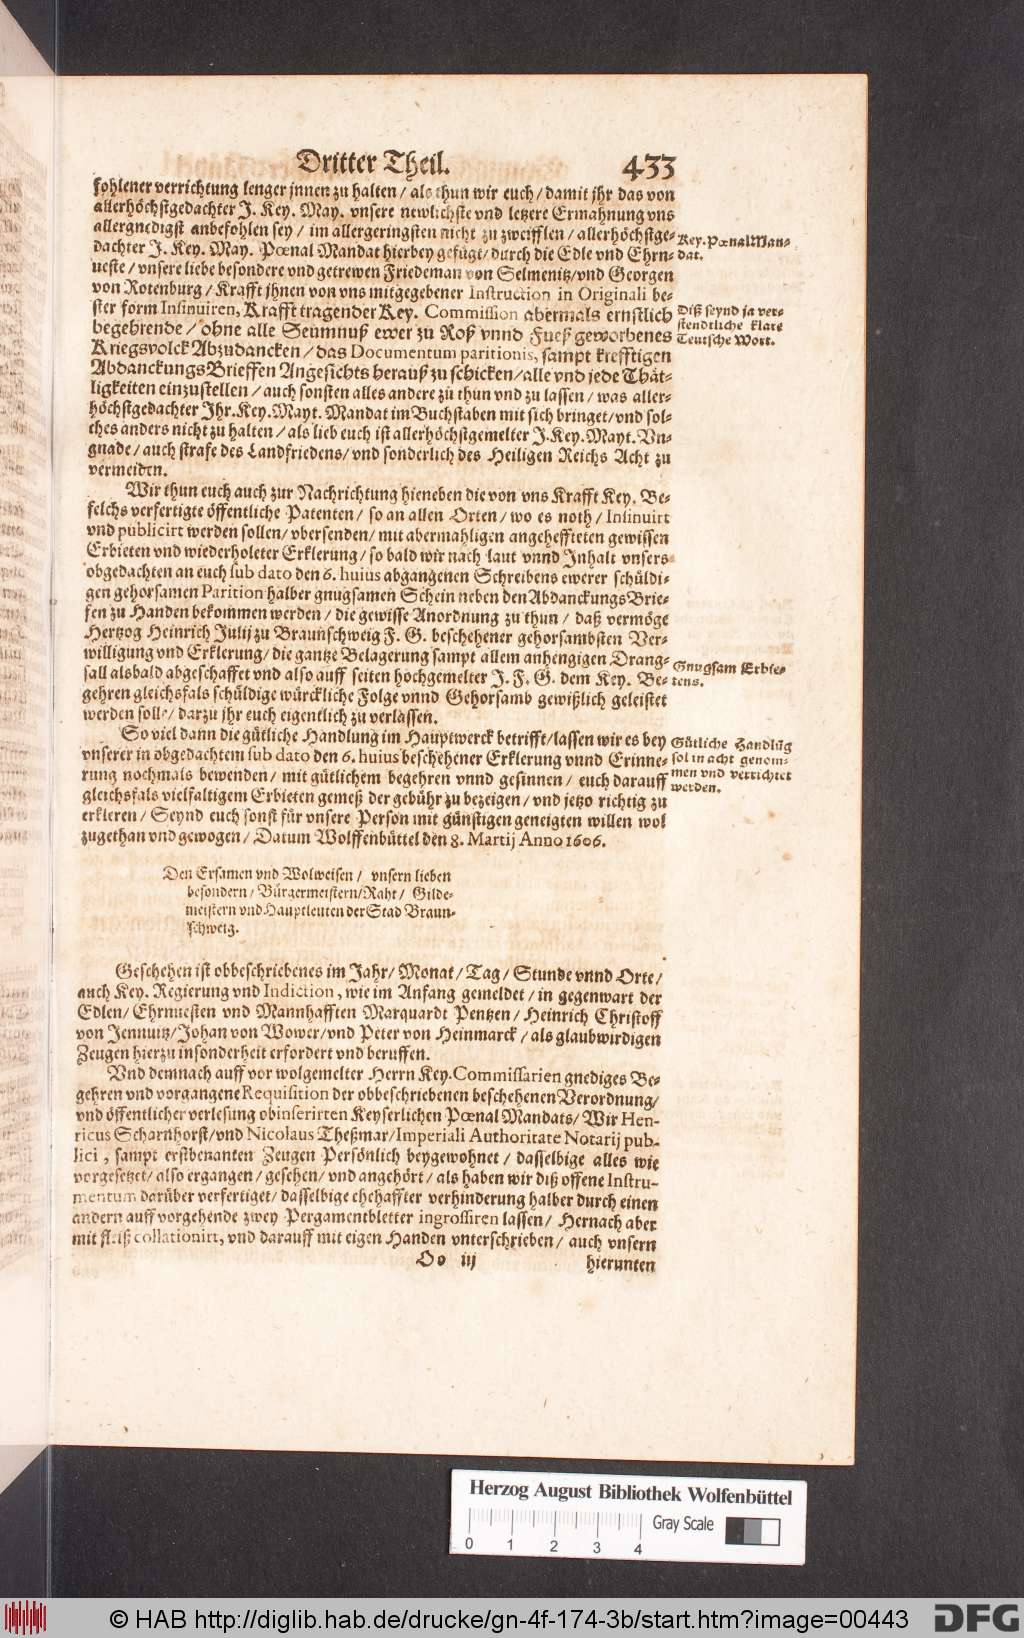 Dritter Theil. 433
fohlener verrichtung lenger jnnen zu halten / als thun wir euch / damit jhr das von
allerhöchstgedachter J. Key. May. vnsere newlichste vnd letzere Ermahnung vns
allergnedigst anbefohlen sey / im allergeringsten nicht zu zweifflen / allerhöchstge-
dachter J. Key. May. Pœnal Mandat hierbey gefügt / durch die Edle vnd Ehrn-
ueste / vnsere liebe besondere vnd getrewen Friedeman von Selmenitz / vnd Georgen
von Rotenburg / Krafft jhnen von vns mitgegebener Instruction in Originali be-
ster form Insinuiren, Krafft tragender Key. Commission abermals ernstlich
begehrende / ohne alle Seumnuß ewer zu Roß vnnd Fueß geworbenes
Kriegsvolck Abzudancken / das Documentum paritionis, sampt krefftigen
Abdanckungs Brieffen Angesichts herauß zu schicken / alle vnd jede Thät-
ligkeiten einzustellen / auch sonsten alles andere zu thun vnd zu lassen / was aller-
höchstgedachter Jhr. Key. Mayt. Mandat im Buchstaben mit sich bringet / vnd sol-
ches anders nicht zu halten / als lieb euch ist allerhöchstgemelter J. Key. Mayt. Vn-
gnade / auch strafe des Landfriedens / vnd sonderlich des Heiligen Reichs Acht zu
vermeiden.
Key. Pœnal Man-
dat.
Diß seynd ja ver-
stendtliche klare
Teutsche Wort.
Wir thun euch auch zur Nachrichtung hieneben die von vns Krafft Key. Be-
felchs verfertigte öffentliche Patenten / so an allen Orten / wo es noth / Insinuirt
vnd publicirt werden sollen / vbersenden / mit abermahligen angeheffteten gewissen
Erbieten vnd wiederholeter Erklerung / so bald wir nach laut vnnd Inhalt vnsers
obgedachten an euch sub dato den 6. huius abgangenen Schreibens ewerer schüldi-
gen gehorsamen Parition halber gnugsamen Schein neben den Abdanckungs Brie-
fen zu Handen bekommen werden / die gewisse Anordnung zu thun / daß vermöge
Hertzog Heinrich Julij zu Braunschweig F. G. beschehener gehorsambsten Ver-
willigung vnd Erklerung / die gantze Belagerung sampt allem anhengigen Drang-
sall alsbald abgeschaffet vnd also auff seiten hochgemelter J. F. G. dem Key. Be-
gehren gleichsfals schüldige würckliche Folge vnnd Gehorsamb gewißlich geleistet
werden solle / darzu jhr euch eigentlich zu verlassen.
Gnugsam Erbie-
tens.
So viel dann die gütliche Handlung im Hauptwerck betrifft / lassen wir es bey
vnserer in obgedachtem sub dato den 6. huius beschehener Erklerung vnnd Erinne-
rung nochmals bewenden / mit gütlichem begehren vnnd gesinnen / euch darauff
gleichsfals vielfaltigem Erbieten gemeß der gebühr zu bezeigen / vnd jetzo richtig zu
erkleren / Seynd euch sonst für vnsere Person mit günstigen geneigten willen wol
zugethan vnd gewogen / Datum Wolffenbüttel den 8. Martij Anno 1606.
Gütliche Handlũg
sol in acht genom-
men vnd verrichtet
werden.
Den Ersamen vnd Wolweisen / vnsern lieben
besondern / Bürgermeistern / Raht / Gilde-
meistern vnd Hauptleuten der Stad Braun-
schweig.
Geschehen ist obbeschriebenes im Jahr / Monat / Tag / Stunde vnnd Orte /
auch Key. Regierung vnd Indiction, wie im Anfang gemeldet / in gegenwart der
Edlen / Ehrnuesten vnd Mannhafften Marquardt Pentzen / Heinrich Christoff
von Jennuitz / Johan von Wower / vnd Peter von Heinmarck / als glaubwirdigen
Zeugen hierzu insonderheit erfordert vnd beruffen.
Vnd demnach auff vor wolgemelter Herrn Key. Commissarien gnediges Be-
gehren vnd vorgangene Requisition der obbeschriebenen beschehenen Verordnung /
vnd öffentlicher verlesung obinserirten Keyserlichen Pœnal Mandats / Wir Hen-
ricus Scharnhorst / vnd Nicolaus Theßmar / Imperiali Authoritate Notarij pub-
lici, sampt erstbenanten Zeugen Persönlich beygewohnet / dasselbige alles wie
vorgesetzet / also ergangen / gesehen / vnd angehört / als haben wir diß offene Instru-
mentum darüber verfertiget / dasselbige ehehaffter verhinderung halber durch einen
andern auff vorgehende zwey Pergamentbletter ingrossiren lassen / Hernach aber
mit fleiß collationirt, vnd darauff mit eigen Handen vnterschrieben / auch vnsern
Oo iij hierunten
Herzog August Bibliothek Wolfenbüttel
0 1 2 3 4 Gray Scale
© HAB http://diglib.hab.de/drucke/gn-4f-174-3b/start.htm?image=00443 DFG